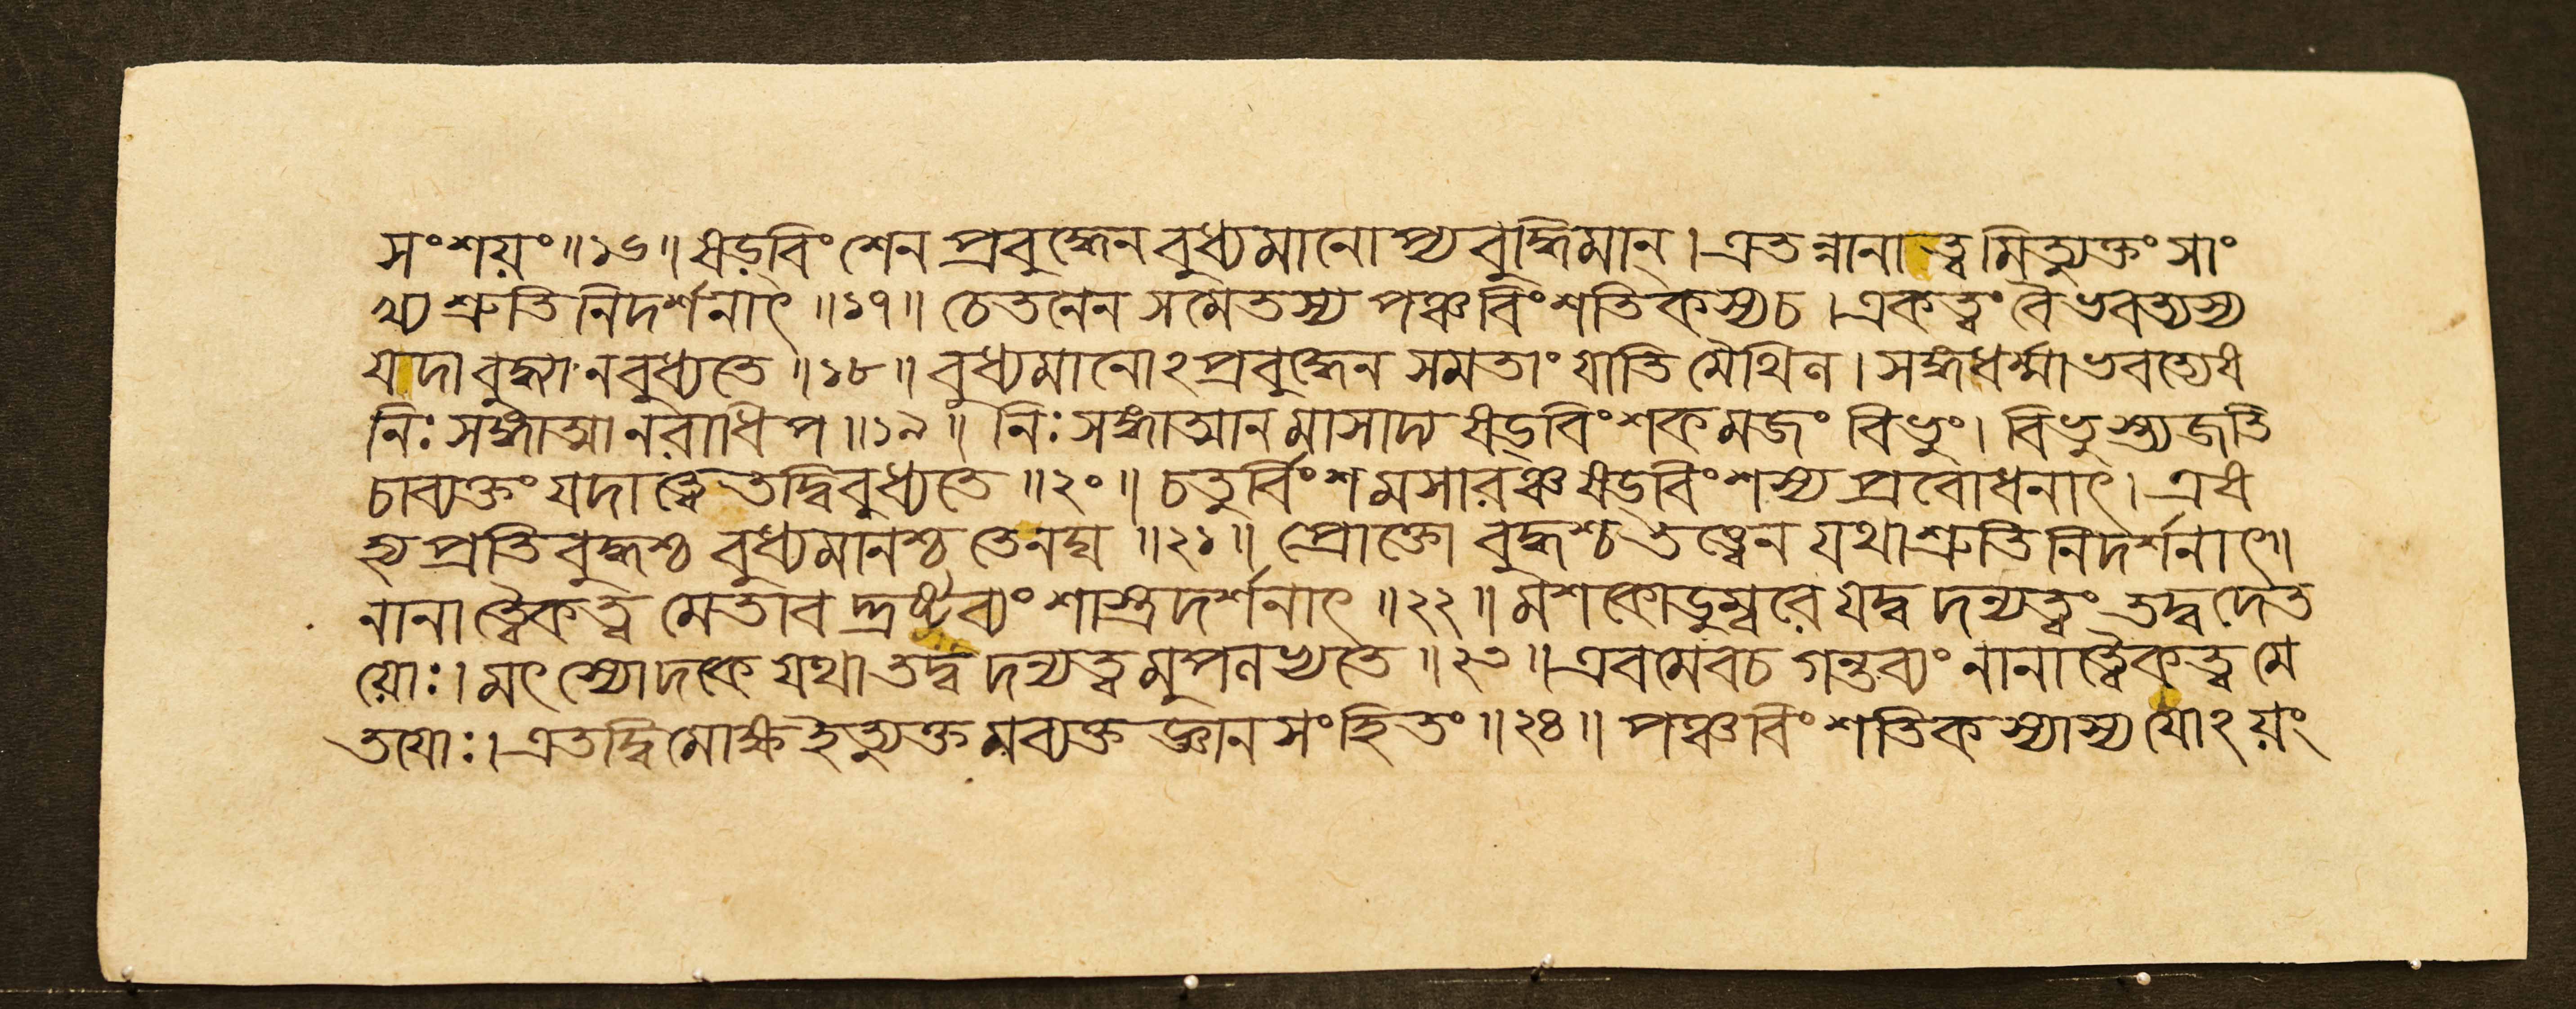 সংশয়ং॥১৬॥ষড়্বিংশেন প্রবুদ্ধেন বুধ্যমানোপ্যবুদ্ধিমান্।এতন্নানাত্বমিত্যুক্তং সাং
খ্য শ্রুতিনিদর্শনাৎ॥১৭॥চেতনেন সমেতস্য পঞ্চবিংশতিকস্যচ।একত্বংবৈভবত্যস্য
যদাবুদ্ধ্যানবুধ্যতে॥১৮॥বুধ্যমানোঽপ্রবুদ্ধেন সমতাং যাতি মৈথিল।সঙ্গধর্ম্মাভবত্যেষ
নিঃসঙ্গাত্মানরাধিপ॥১৯॥নিঃসঙ্গাত্মানমাসাদ্য ষড়্বিংশকমজং বিভুং।বিভুস্ত্যজতি
চাব্যক্তং যদাত্বেতদ্বিবুধ্যতে॥২০॥চতুর্বিংশমসারঞ্চ ষড়্বিংশস্য প্রবোধনাৎ।এষ
হ্যপ্রতিবুদ্ধশ্চ বুধ্যমানশ্চ তেনঘ॥২১॥প্রোক্তো বুদ্ধশ্চতত্ত্বেন যথাশ্রুতিনিদর্শনাৎ॥
নানাত্বৈকত্বমেতাবদ্দ্রষ্টব্যং শাস্ত্রদর্শনাৎ॥২২॥মশকোডুম্বরে যদ্বদন্যত্বং তদ্বদেত
য়োঃ।মৎস্যোদকে যথাতদ্বদন্যত্বমুপলভ্যতে॥২৩॥এবমেবচ গন্তব্যং নানাত্বৈকত্বমে
তযোঃ।এতদ্বিমোক্ষইত্যুক্তমব্যক্তজ্ঞানসংহিতং॥২৪॥পঞ্চবিংশতিকস্যাস্য যোঽয়ং